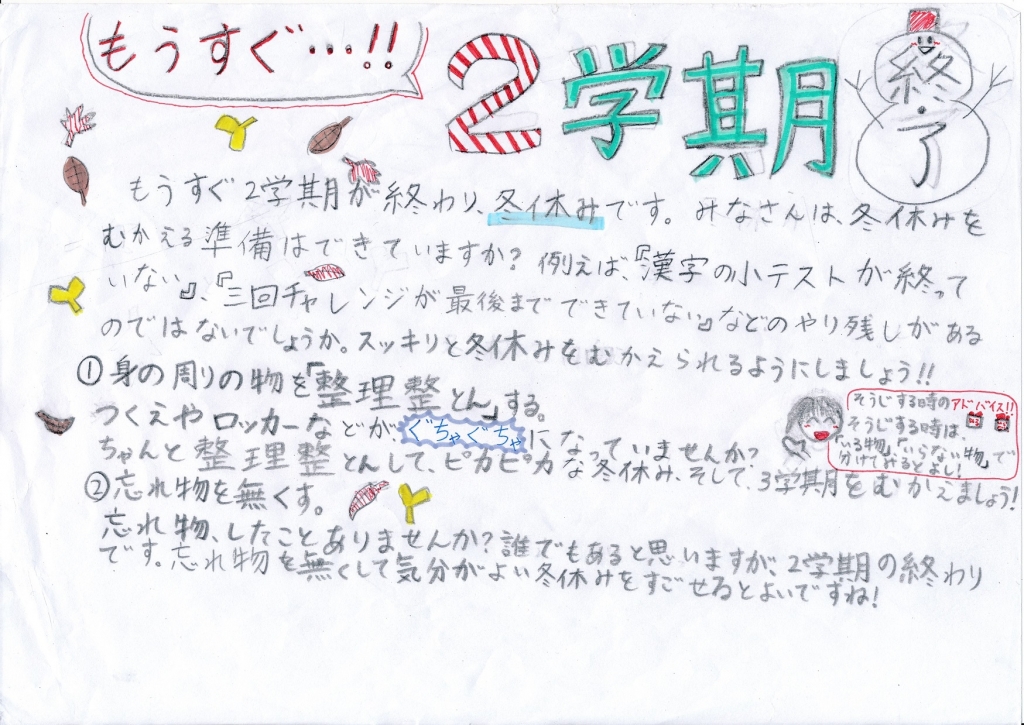 もうすぐ…!!
2学期
終了
もうすぐ2学期が終わり、冬休みです。みなさんは、冬休みを
むかえる準備はできていますか?例えば、『漢字の小テストが終って
いない』、『三回チャレンジが最後までできていない』などのやり残しがある
のではないでしょうか。スッキリと冬休みをむかえられるようにしましょう!!
①身の周りの物を「整理整とん」する。
つくえやロッカーなどが、ぐちゃぐちゃになっていませんか?
ちゃんと整理整とんして、ピカピカな冬休み、そして、3学期をむかえましょう!
そうじする時のアドバイス!!
そうじする時は、
「いる物」、「いらない物」で
分けてみるとよし!
②忘れ物を無くす。
忘れ物、したことありませんか?誰でもあると思いますが、2学期の終わり
です。忘れ物を無くして気分がよい冬休みをすごせるとよいですね!